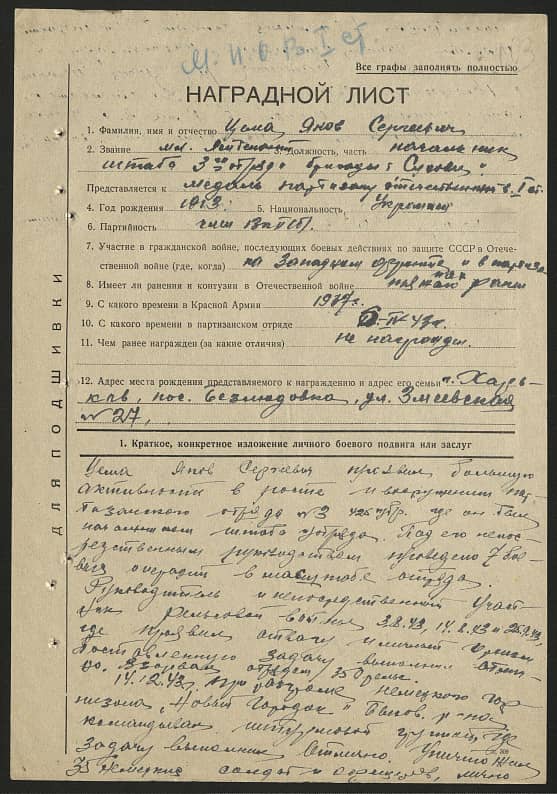 М. П О В. I ст
Все графы заполнять полностью
НАГРАДНОЙ ЛИСТ
1. Фамилия, имя и отчество Цема Яков Сергеевич
2. Звание мл. Лейтенант 3. Должность, часть начальник
штаба 3го отряда бригады
Представляется к медаль партизану отечественной в. I ст.
4. Год рождения 1913 5. Национальность, Украинец
6. Партийность член ВКП(б).
7. Участие в гражданской войне, последующих боевых действиях по защите СССР в Отече-
ственной войне (где, когда) на Западном фронте и в партиза
8. Имеет ли ранения и контузии в Отечественной войне
9. С какого времени в Красной Армии
10. С какого времени в партизанском отряде IV 43 г.
11. Чем ранее награжден (за какие отличия) не награжден.
12. Адрес места рождения представляемого к награждению и адрес его семьи г. Харь-
ков, пос. Безлюдовка, ул. Змиевская
№ 27,
ДЛЯ ПОДШИВКИ
1. Краткое, конкретное изложение личного боевого подвига или заслуг
Цема Яков Сергеевич проявил большую
активность в росте и вооружении пар
тизанского отряда № 3 где он был
начальником штаба отряда. Под его непос-
редственным руководством проведено 7 бое-
вых операций в масштабе отряда.
Руководитель и непосредственный участ-
ник рельсовой войны 3.8.43, 14.8.43 и
где проявил отвагу и
поставленную задачу выполнил отлич-
но. Взорвал отрядом 350 рельс.
14.12.43, при разгроме немецкого гар
низона "Новый Городок" Быхов. р-на
командовал штурмовой группой
Задачу выполнил отлично. Уничтожил
35 Немецких солдат и офицеров, лично